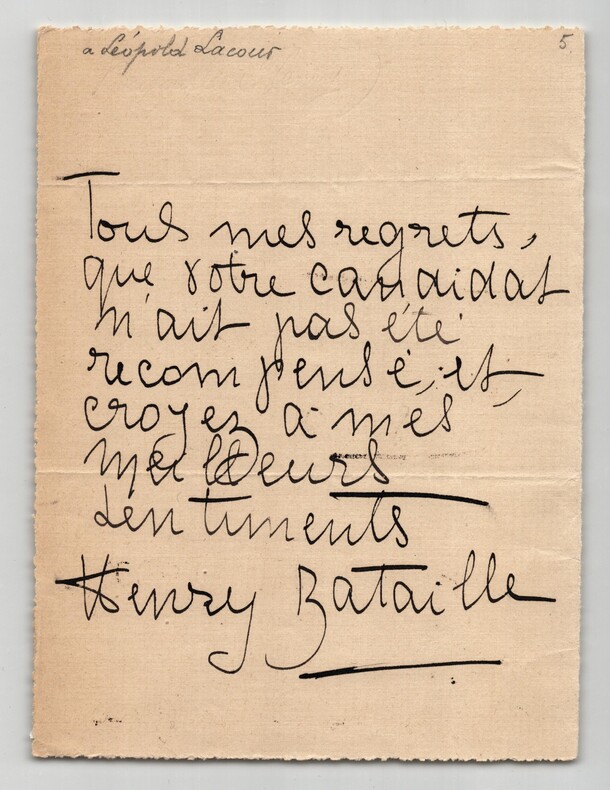 à Léopold Lacour
5.
Tous mes regrets,
que votre candidat
n'ait pas été
recompensé, et
croyez à mes
meilleurs
sentiments
Henry Bataille